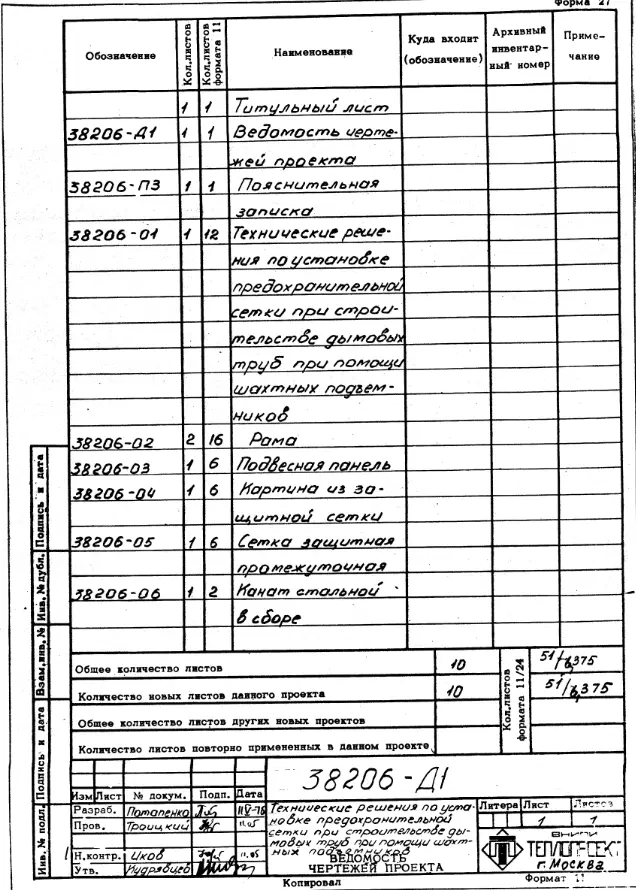 Форма 27
Обозначение Кол.листов Кол.листов формата 11 Наименование Куда входит (обозначение) Архивный инвентар-ный номер Приме-чание
1 1 Титульный лист
38206-Д1 1 1 Ведомость черте-
жей проекта
38206-ПЗ 1 1 Пояснительная
записка
38206-01 1 12 Технические реше-
ния по установке
предохранительной
сетки при строи-
тельстве дымовых
труб при помощи
шахтных подъем-
ников
38206-02 2 16 Рама
38206-03 1 6 Подвесная панель
38206-04 1 6 Картина из за-
щитной сетки
38206-05 1 6 Сетка защитная
промежуточная
38206-06 1 2 Канат стальной
в сборе
Общее количество листов 10 Кол.листов формата 11/24 51/
Количество новых листов данного проекта 10 51/
Общее количество листов других новых проектов
Количество листов повторно примененных в данном проекте
Инв. № подл. Подпись и дата Взам.инв. № Инв. № дубл. Подпись и дата
38206-Д1
Изм Лист № докум. Подп. Дата
Разраб. Потапенко
Пров. Троицкий 11.05
Н.контр. Ихов 11.05
Утв. Кудрявцев
Технические решения по уста-
новке предохранительной
сетки при строительстве ды-
мовых труб при помощи шахт-
ных подъемников
ВЕДОМОСТЬ
ЧЕРТЕЖЕЙ ПРОЕКТА
Литера Лист Листов
1 1
ВНИПИ
ТЕПЛОПРОЕКТ
г.Москва
Копировал Формат 11